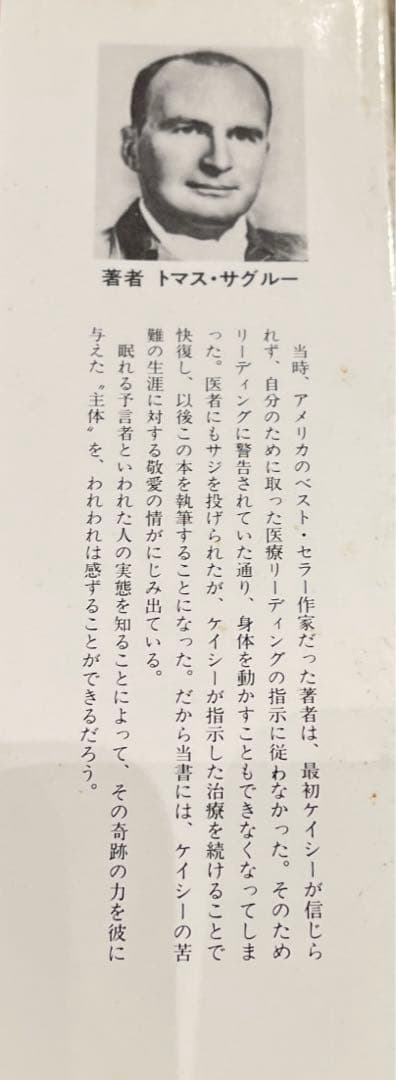 著者 トマス・サグルー
当時、アメリカのベスト・セラー作家だった著者は、最初ケイシーが信じら
れず、自分のために取った医療リーディングの指示に従わなかった。そのため
リーディングに警告されていた通り、身体を動かすこともできなくなってしま
った。医者にもサジを投げられたが、ケイシーが指示した治療を続けることで
快復し、以後この本を執筆することになった。だから当書には、ケイシーの苦
難の生涯に対する敬愛の情がにじみ出ている。
眠れる予言者といわれた人の実態を知ることによって、その奇跡の力を彼に
与えた〝主体〟を、われわれは感ずることができるだろう。